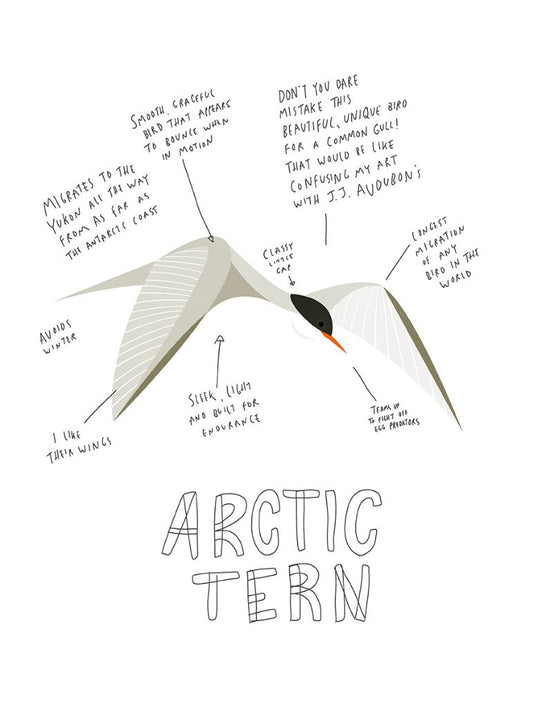 DON'T YOU DARE
MISTAKE THIS
BEAUTIFUL, UNIQUE BIRD
FOR A COMMON GULL!
THAT WOULD BE LIKE
CONFUSING MY ART
WITH J.J. AUDUBON'S
SMOOTH, GRACEFUL
BIRD THAT APPEARS
TO BOUNCE WHEN
IN MOTION
MIGRATES TO THE
YUKON ALL THE WAY
FROM AS FAR AS
THE ANTARCTIC COAST
CLASSY
LITTLE
CAP
LONGEST
MIGRATION
OF ANY
BIRD IN THE
WORLD
AVOIDS
WINTER
I LIKE
THEIR WINGS
SLEEK, LIGHT
AND BUILT FOR
ENDURANCE
TEAM UP
TO FIGHT OFF
EGG PREDATORS
ARCTIC
TERN